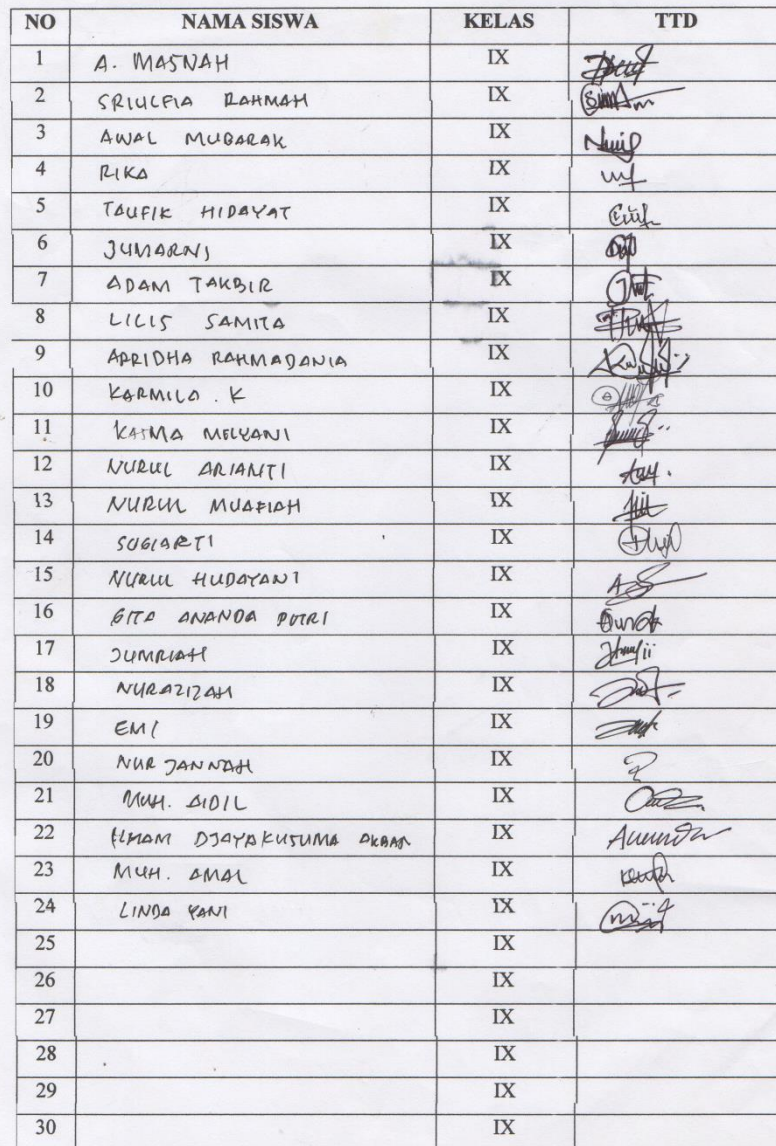 NO NAMA SISWA KELAS TTD
1 A. MASNAH IX
2 SRIULFIA RAHMAH IX
3 AWAL MUBARAK IX
4 RIKA IX
5 TAUFIK HIDAYAT IX
6 JUMARNI IX
7 ADAM TAKBIR IX
8 LILIS SAMITA IX
9 APRIDHA RAHMADANIA IX
10 KARMILA . K IX
11 KASMA MELYANI IX
12 NURUL ARIANTI IX
13 NURUL MUAFIAH IX
14 SUGIARTI IX
15 NURUL HUDAYANI IX
16 GITA ANANDA PUTRI IX
17 JUMRIAH IX
18 NURAZIZAH IX
19 EMI IX
20 NUR JANNAH IX
21 MUH. AIDIL IX
22 ILHAM DJAYAKUSUMA AKBAR IX
23 MUH. AMAL IX
24 LINDA YANI IX
25 IX
26 IX
27 IX
28 IX
29 IX
30 IX